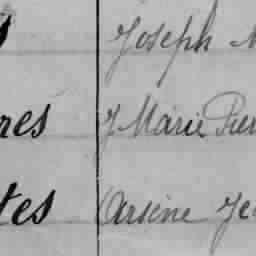 s Joseph M
res J Marie Pier
tes Arsène Je